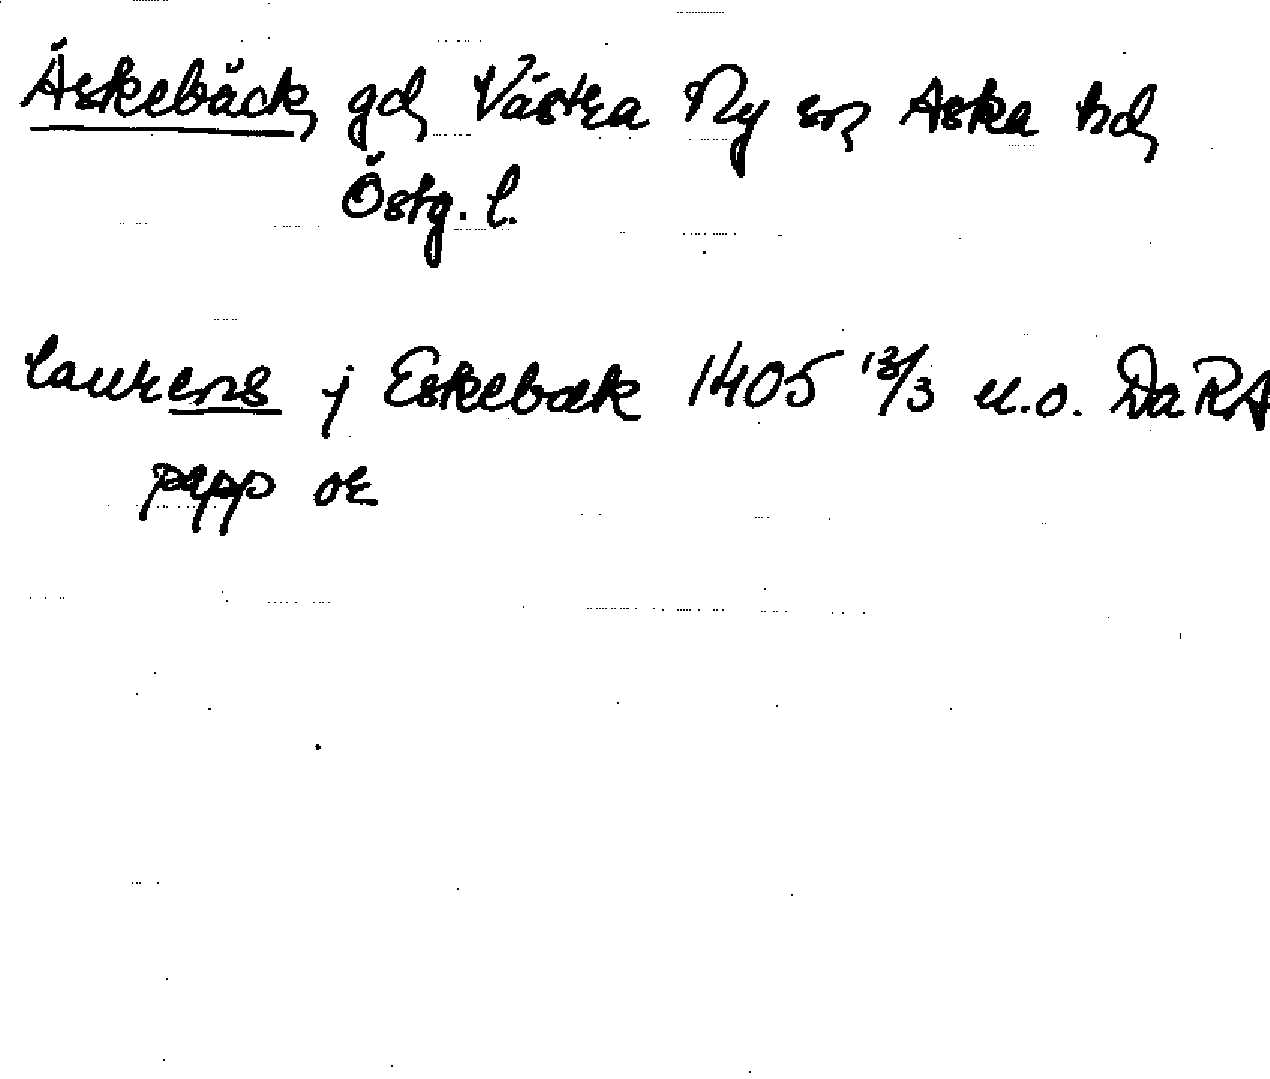 Äskebäck, gd, Västra Ny sn, Aska hd,
Östg. l.
laurens j Eskebæk 1405 13/3 u.o. DaRA
papp or